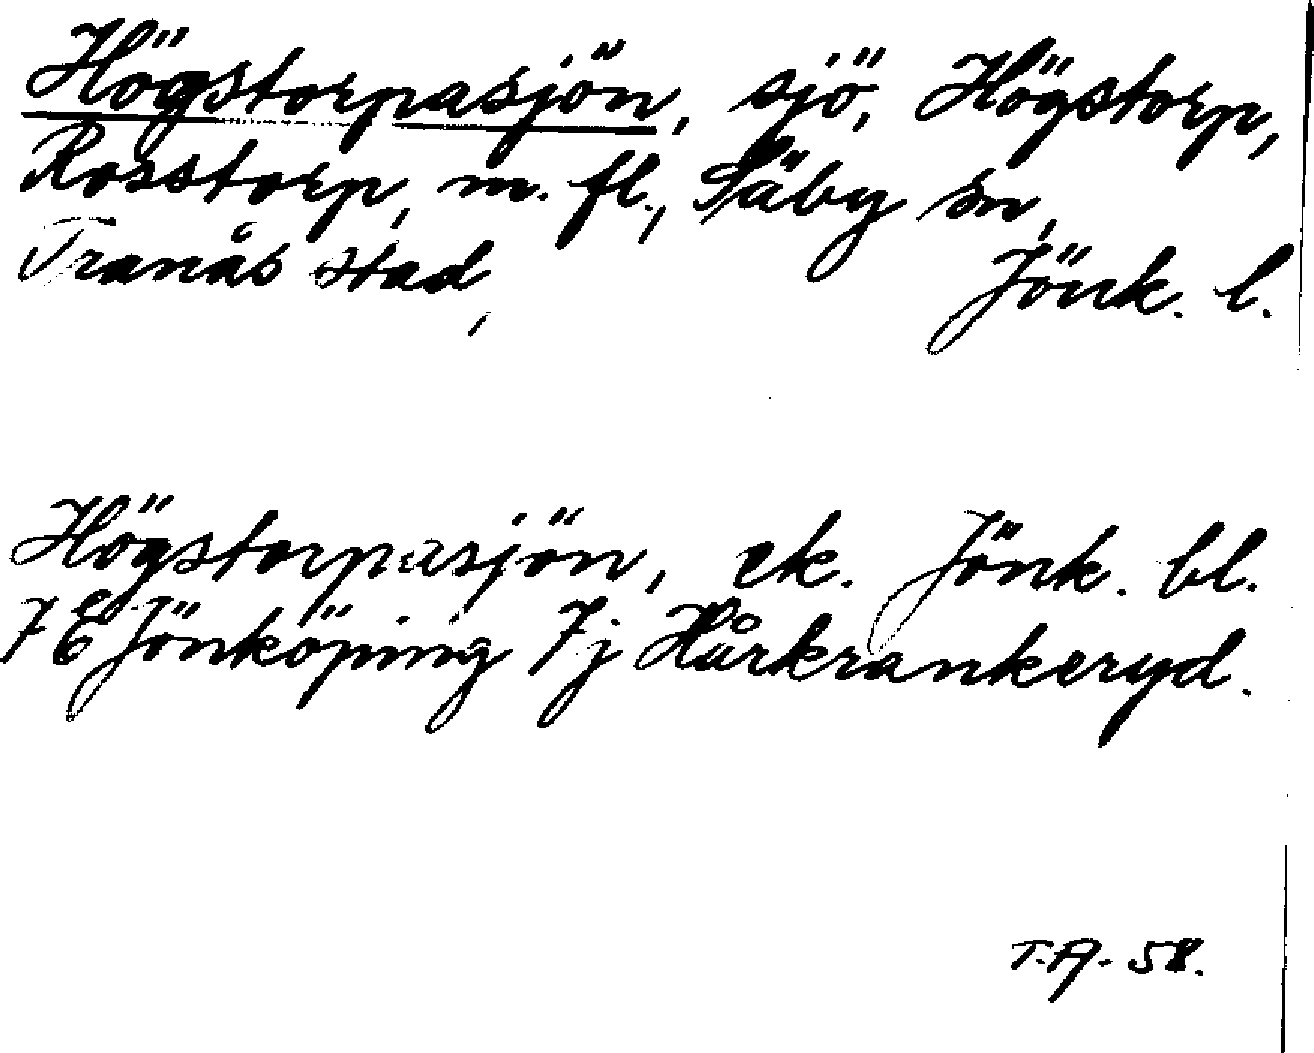 Högstorpasjön, sjö, Högstorp,
Rosstorp, m. fl., Säby sn,
Tranås stad, Jönk. l.
Högstorpasjön, ek. Jönk. bl.
7 E Jönköping 7j Hårkrankeryd.
T.A. 58.